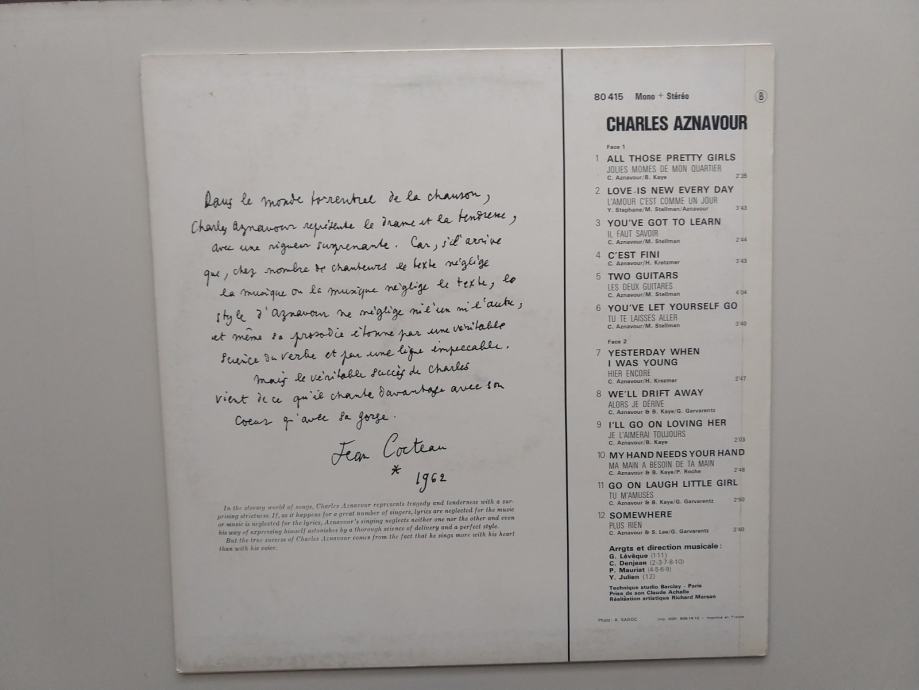 Dans le monde torrentiel de la chanson,
Charles Aznavour représente le drame et la tendresse,
avec une rigueur surprenante. Car, s'il arrive
que, chez nombre de chanteurs le texte néglige
la musique ou la musique néglige le texte, le
style d'Aznavour ne néglige ni l'un ni l'autre,
et même sa prosodie étonne par une véritable
science du verbe et par une ligne impeccable.
Mais le véritable succès de Charles
vient de ce qu'il chante davantage avec son
coeur qu'avec sa gorge.
Jean Cocteau
*
1962
In the stormy world of songs, Charles Aznavour represents tragedy and tenderness with a sur-
prising strictness. If, as it happens for a great number of singers, lyrics are neglected for the music
or music is neglected for the lyrics, Aznavour's singing neglects neither one nor the other and even
his way of expressing himself astonishes by a thorough science of delivery and a perfect style.
But the true success of Charles Aznavour comes from the fact that he sings more with his heart
than with his voice.
80 415 Mono + Stéréo B
CHARLES AZNAVOUR
Face 1
1 ALL THOSE PRETTY GIRLS
JOLIES MOMES DE MON QUARTIER
C. Aznavour/B. Kaye 2'35
2 LOVE IS NEW EVERY DAY
L'AMOUR C'EST COMME UN JOUR
Y. Stephane/M. Stellman/Aznavour 3'43
3 YOU'VE GOT TO LEARN
IL FAUT SAVOIR
C. Aznavour/M. Stellman 2'44
4 C'EST FINI
C. Aznavour/H. Kretzmer 3'43
5 TWO GUITARS
LES DEUX GUITARES
C. Aznavour/M. Stellman 4'04
6 YOU'VE LET YOURSELF GO
TU TE LAISSES ALLER
C. Aznavour/M. Stellman 3'40
Face 2
7 YESTERDAY WHEN
I WAS YOUNG
HIER ENCORE
C. Aznavour/H. Krezmer 2'47
8 WE'LL DRIFT AWAY
ALORS JE DÉRIVE
C. Aznavour & B. Kaye/G. Garvarentz
9 I'LL GO ON LOVING HER
JE L'AIMERAI TOUJOURS
C. Aznavour/B. Kaye 2'03
10 MY HAND NEEDS YOUR HAND
MA MAIN A BESOIN DE TA MAIN
C. Aznavour & B. Kaye/P. Roche 2'48
11 GO ON LAUGH LITTLE GIRL
TU M'AMUSES
C. Aznavour & B. Kaye/G. Garvarentz 2'50
12 SOMEWHERE
PLUS RIEN
C. Aznavour & S. Lee/G. Garvarentz
Arrgts et direction musicale :
G. Lévêque (1-11)
C. Denjean (2-3-7-8-10)
P. Mauriat (4-5-6-9)
Y. Julien (12)
Technique studio Barclay - Paris
Prise de son Claude Achalle
Réalisation artistique Richard Marsan
Photo : A. SADOC
Imprimé en France